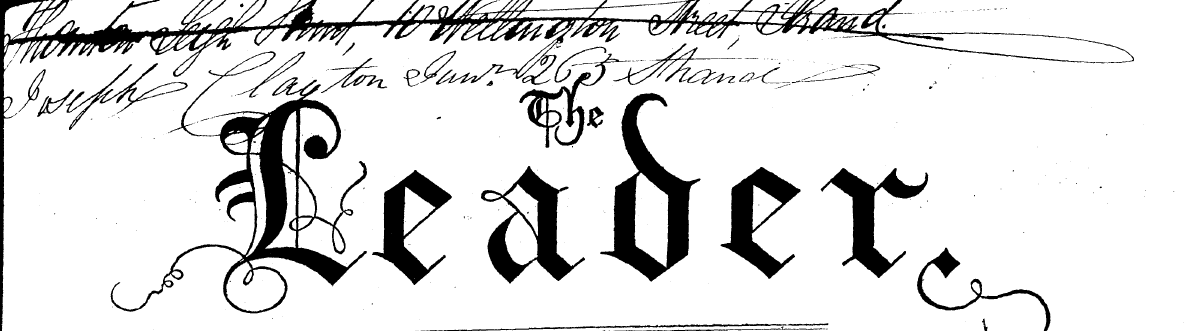 Thornton Leigh Hunt, 10 Wellington Street, Strand.
Joseph Clayton Junr. 263 Strand
The
Leader.